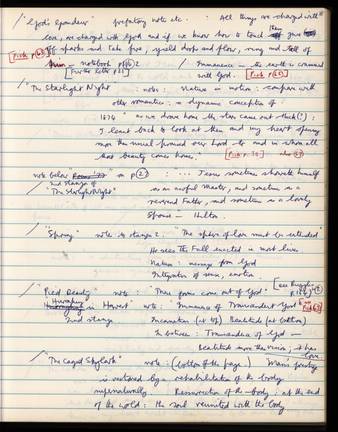 "God's Grandeur" prefatory note etc. : All things are charged with
love, are charged with God and if we know how to touch them give off
sparks and take fire, yield drops and flow, ring and tell of
him — notebook p
[Pick p
[Further letter p
Immanence in the earth is
with God. [Pick p
"The Starlight Night" : note : Nature in motion : compare with
other romantics : a dynamic conception of
1874 " as we drove home the stars came out thick (!) :
I leant back to look at them and my heart opening
more than usual praised our Lord to and in whom all
that beauty comes home."
[Pick p. also
note below on p (2) : ... Jesus sometimes shareth himself
2nd stanza of
"The Starlight Night"
as an awful Master, and sometimes as a
reverend Father, and sometimes as a lovely
Spouse — Hilton.
"Spring" note to stanza 2 : "The sphere of love must be extended"
He sees the Fall enacted in most lives.
Nature : message from God
Integration of sense, emotion.
"Pied Beauty" note : "These forms come out of God"
[see
"Hurrahing in Harvest" note : Immanence of Transcendent God"
2nd stanza Incarnation (at top) Beatitude (at bottom)
In between : Transcendence of God —
Beatitude
love.
"The Caged Skylark" note : (bottom of the page) Man's
is restored by a rehabilitation of the body
supernaturally. Resurrection of the body : at the end
of the world : the soul reunited with the body